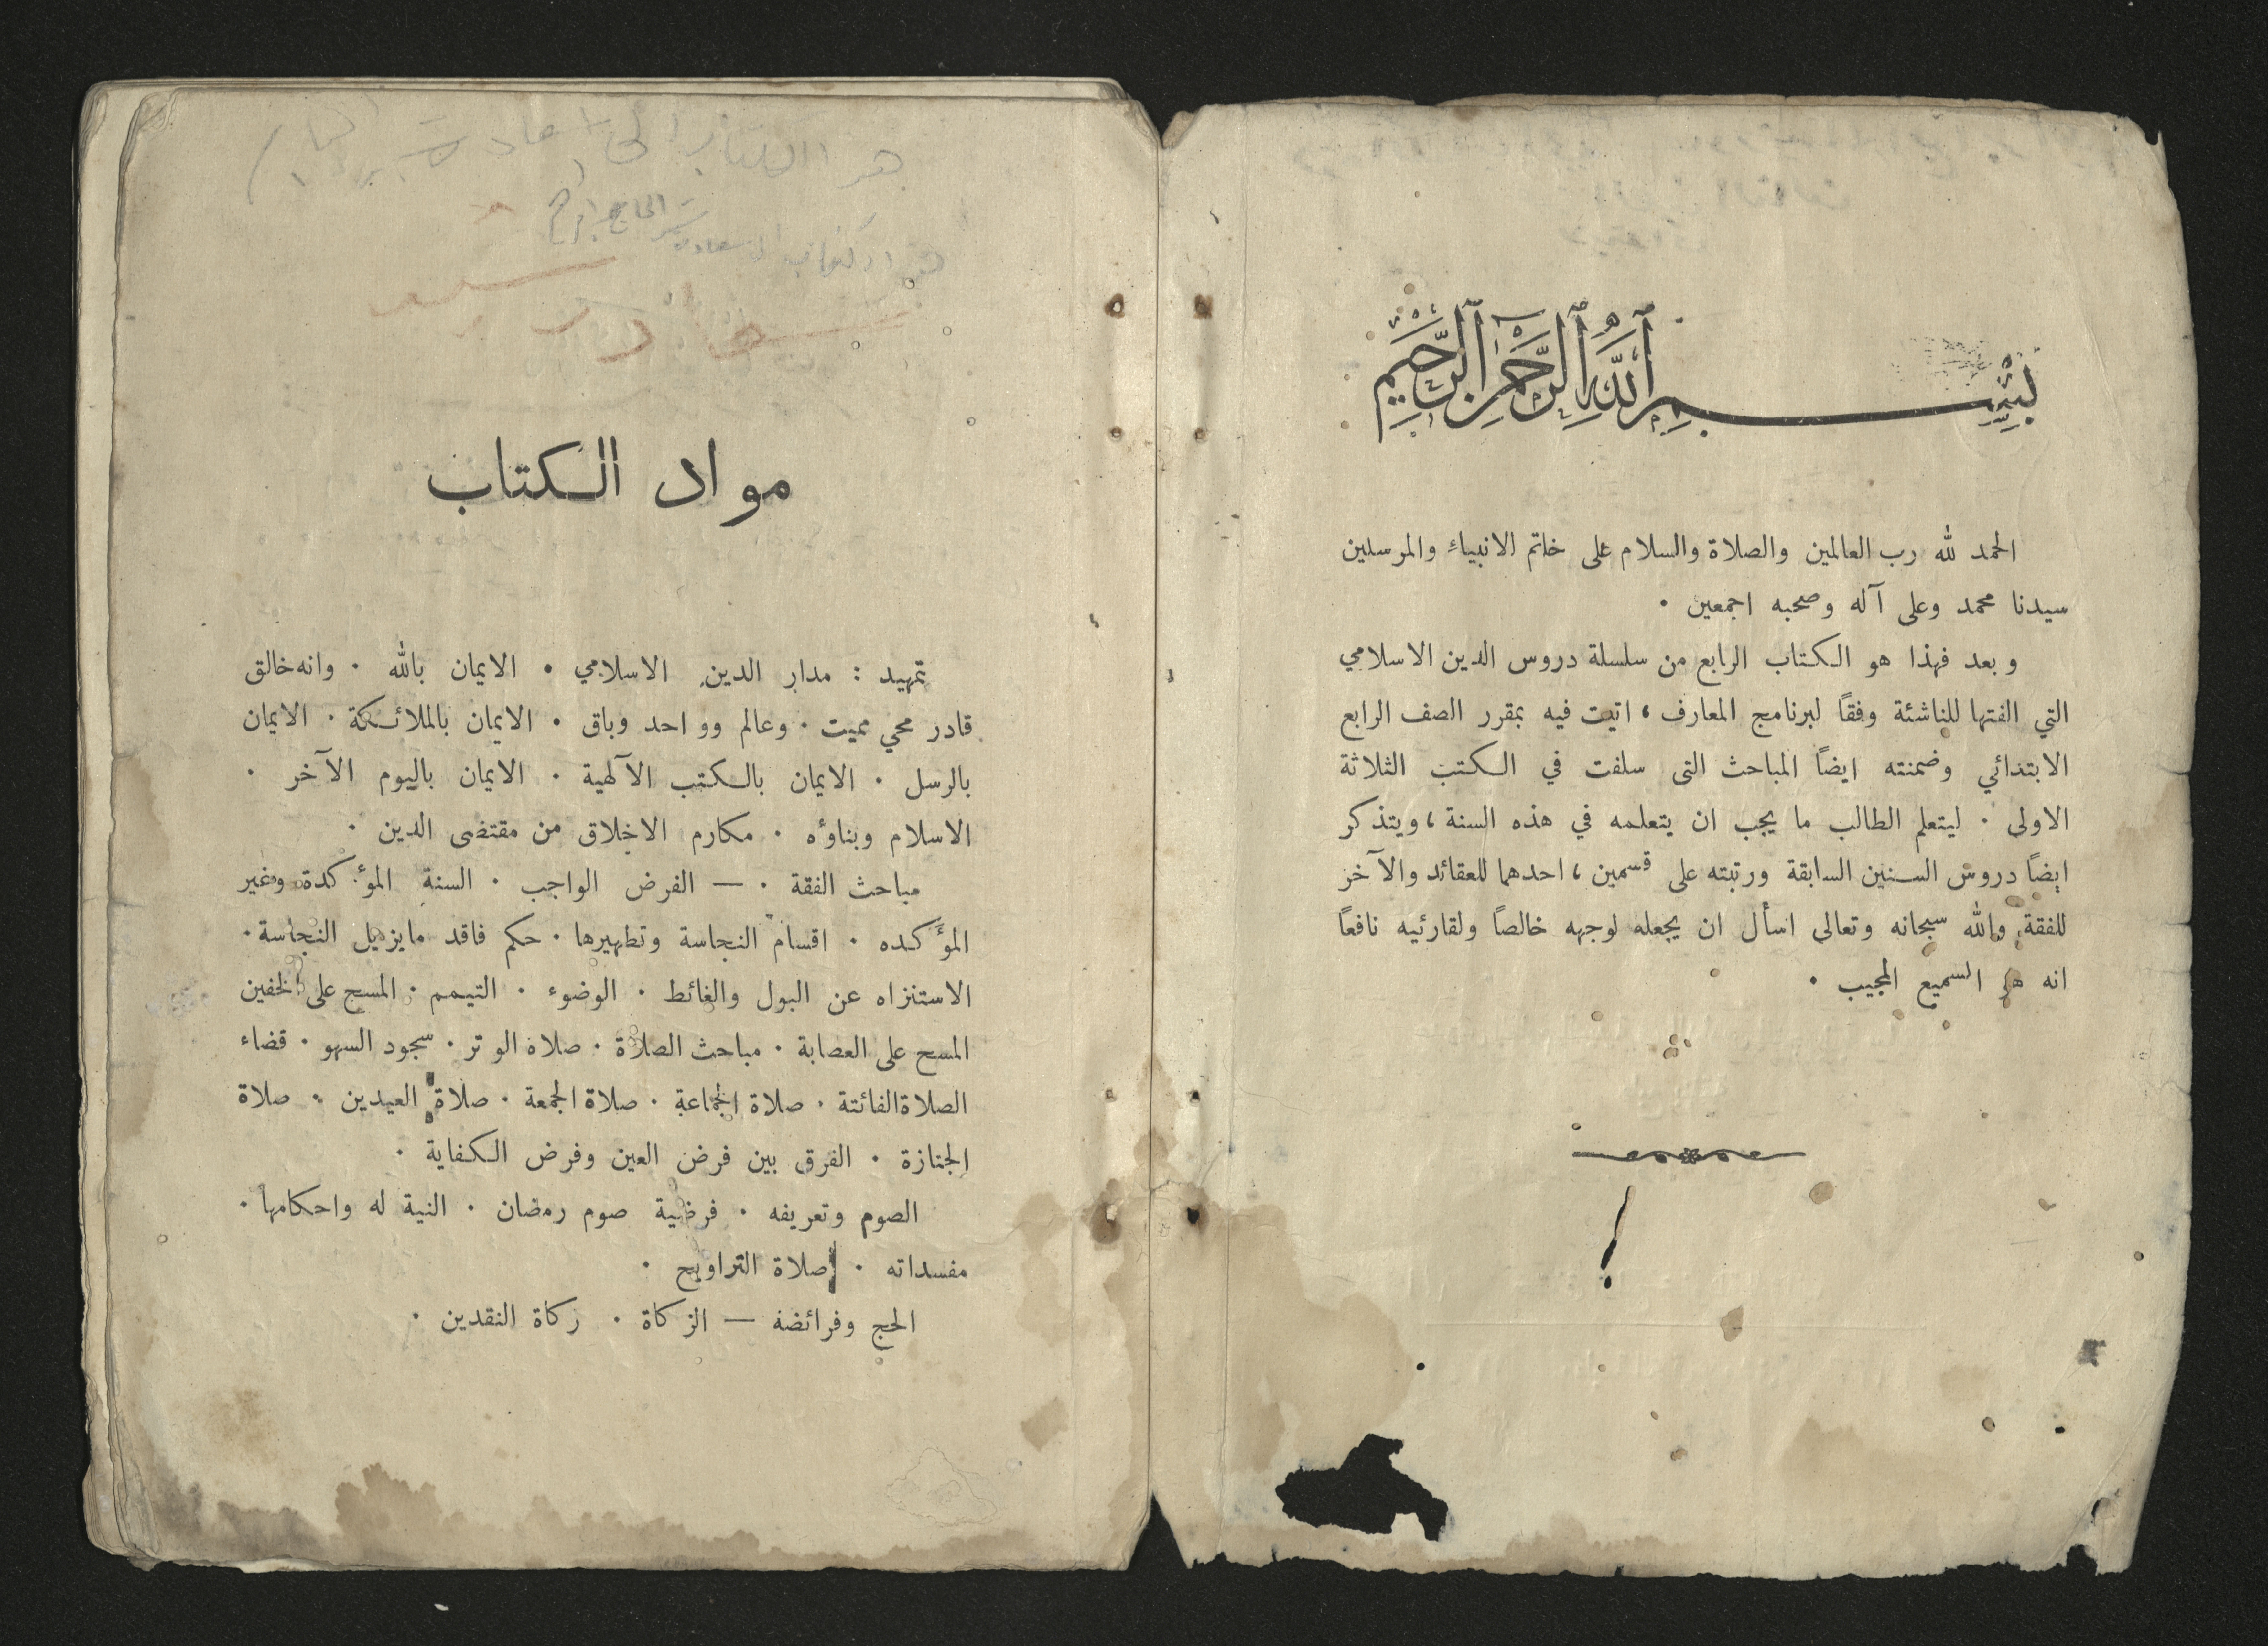 بِسْمِ ٱللَّهِ ٱلرَّحْمَٰنِ ٱلرَّحِيمِ
الحمد لله رب العالمين والصلاة والسلام على خاتم الانبياء والمرسلين
سيدنا محمد وعلى آله وصحبه اجمعين .
وبعد فهذا هو الكتاب الرابع من سلسلة دروس الدين الاسلامي
التي الفتها للناشئة وفقاً لبرنامج المعارف ، اتيت فيه بمقرر الصف الرابع
الابتدائي وضمنته ايضاً المباحث التى سلفت في الكتب الثلاثة
الاولى . ليتعلم الطالب ما يجب ان يتعلمه في هذه السنة ، ويتذكر
ايضاً دروس السنين السابقة ورتبته على قسمين ، احدهما للعقائد والآخر
للفقة والله سبحانه وتعالى اسأل ان يجعله لوجهه خالصاً ولقارئيه نافعاً
انه هو السميع المجيب .
هذا الكتاب الى
الحاج
هذا الكتاب الى سعادة
مواد الكتاب
تمهيد : مدار الدين الاسلامي . الايمان بالله . وانه خالق
قادر محي مميت . وعالم وواحد وباق . الايمان بالملائكة . الايمان
بالرسل . الايمان بالكتب الآلهية . الايمان باليوم الآخر .
الاسلام وبناؤه . مكارم الاخلاق من مقتضى الدين .
مباحث الفقة . — الفرض الواجب . السنة المؤكدة وغير
المؤكده . اقسام النجاسة وتطهيرها . حكم فاقد مايزيل النجاسة .
الاستنزاه عن البول والغائط . الوضوء . التيمم . المسح على الخفين
المسح على العصابة . مباحث الصلاة . صلاة الوتر . سجود السهو . قضاء
الصلاة الفائتة . صلاة الجماعة . صلاة الجمعة . صلاة العيدين . صلاة
الجنازة . الفرق بين فرض العين وفرض الكفاية .
الصوم وتعريفه . فرضية صوم رمضان . النية له واحكامها .
مفسداته . صلاة التراويح .
الحج وفرائضه — الزكاة . زكاة النقدين .